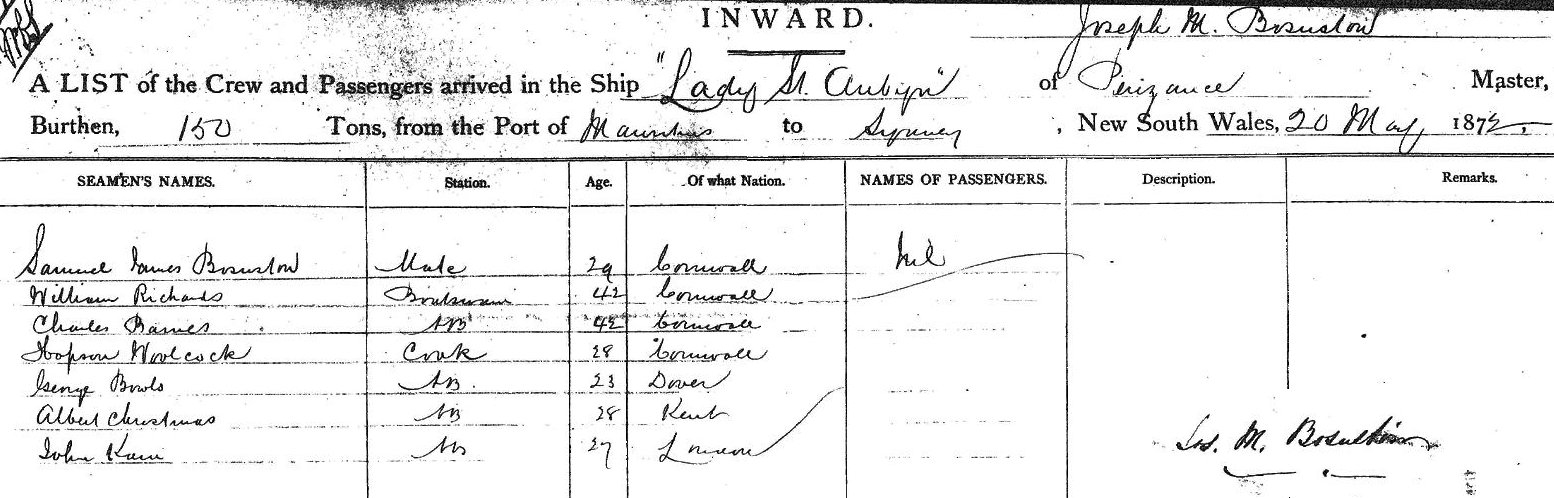 INWARD.
Joseph M. Bosustow
A LIST of the Crew and Passengers arrived in the Ship "Lady St. Aubyn" of Penzance Master,
Burthen, 150 Tons, from the Port of Mauritius to Sydney, New South Wales, 20 May 1872,
SEAMEN'S NAMES. Station. Age. Of what Nation. NAMES OF PASSENGERS. Description. Remarks.
Samuel James Bosustow Mate 29 Cornwall Nil
William Richards Boatswain 42 Cornwall
Charles Barnes AB 42 Cornwall
Hopson Woolcock Cook 28 Cornwall
George Bowls AB. 23 Dover
Albert Christmas AB 28 Kent
John AB 27 London
Jos. M. Bosustow